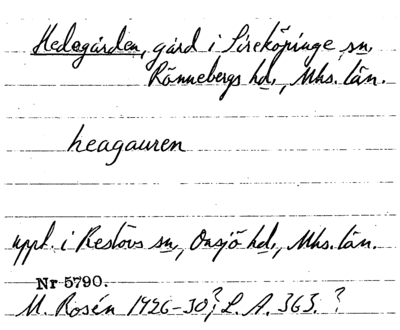 Hedegården, gård i Sireköpinge sn,
Rönnebergs hd., Mhs. län.
heagauren
uppt. i Reslövs sn, Onsjö hd., Mhs. län.
Nr 5790.
M. Rosén 1926-30?; L. A. 363. ?